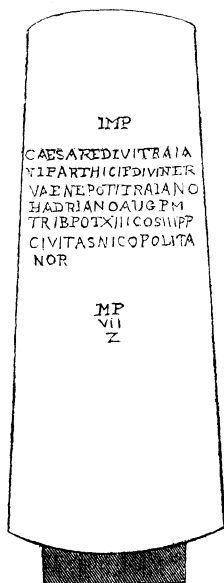 IMP
CAESAREDIVITRAIA
NIPARTHICIFDIVINER
VAENEPOTITRAIANO
HADRIANOAUGPM
TRIBPOTXIIICOSIIIPP
CIVITASNICOPOLITA
NOR
MP
VII
Z